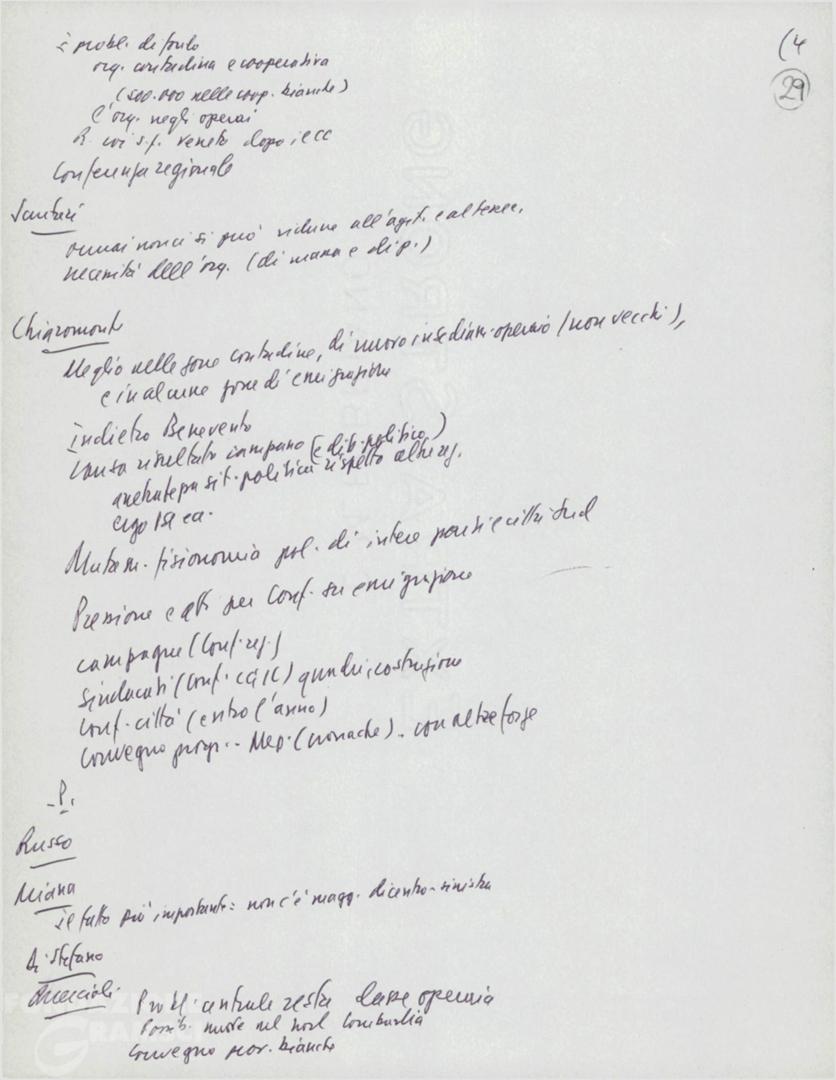 (4
29
i probl. di fondo
org. contadina e cooperativa
(500.000 nelle coop. bianche)
l'org. negli operai
R. coi s.f. veneto dopo il CC
Conferenza regionale
ormai non ci si può ridurre all'agit. e
necessità dell'org. (di massa e di p.)
Chiaromonte
Meglio nelle zone contadine, di nuovo insediam. operaio (non vecchi),
e in alcune zone di emigrazione
Indietro Benevento
Causa risultato campano (e dib. politico)
anche sit. politica rispetto altre reg.
Mutam. fisionomia pol. di intere e città Sud
Pressione e atti per Conf. su emigrazione
campagne (Conf. reg.)
Sindacati (Conf. CGIL) quadri, costruzione
Conf. città (entro l'anno)
Convegno Mep. (cronache). con altre forze
- P.
Russo
Miana
il fatto più importante: non c'è magg. di centro-sinistra
Di Stefano
Quercioli Probl. centrale resta classe operaia
Possib. nuove nel nord Lombardia
Convegno prov. bianche
FONDAZIONE
GRAMSCI